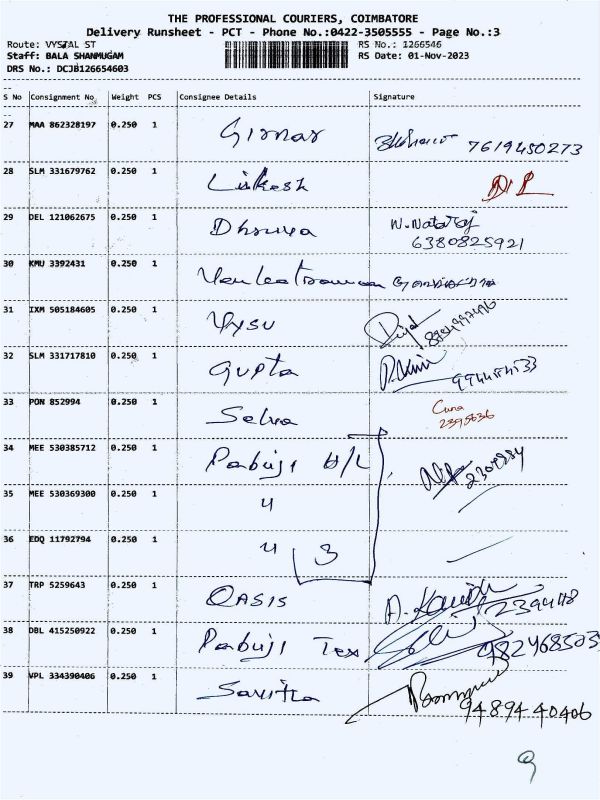 THE PROFESSIONAL COURIERS, COIMBATORE
Delivery Runsheet - PCT - Phone No.:0422-3505555 - Page No.:3
Route: VYSTAL ST RS No.: 1266546
Staff: BALA SHANMUGAM RS Date: 01-Nov-2023
DRS No.: DCJB126654603
S No Consignment No Weight PCS Consignee Details Signature
27 MAA 862328197 0.250 1 Girnar 7619450273
28 SLM 331679762 0.250 1 Likesh
29 DEL 121062675 0.250 1 Dhruva N. Nataraj
6380825921
30 KMU 3392431 0.250 1
31 IXM 505184605 0.250 1 Vysu
32 SLM 331717810 0.250 1 Gupta
33 PON 852994 0.250 1 Selva
2395636
34 MEE 530385712 0.250 1 Pabuji H/L
35 MEE 530369300 0.250 1 "
36 EDQ 11792794 0.250 1 " 3
37 TRP 5259643 0.250 1 OASIS
38 DBL 415250922 0.250 1 Pabuji Tex
39 VPL 334390406 0.250 1 Savitha 94894 40406